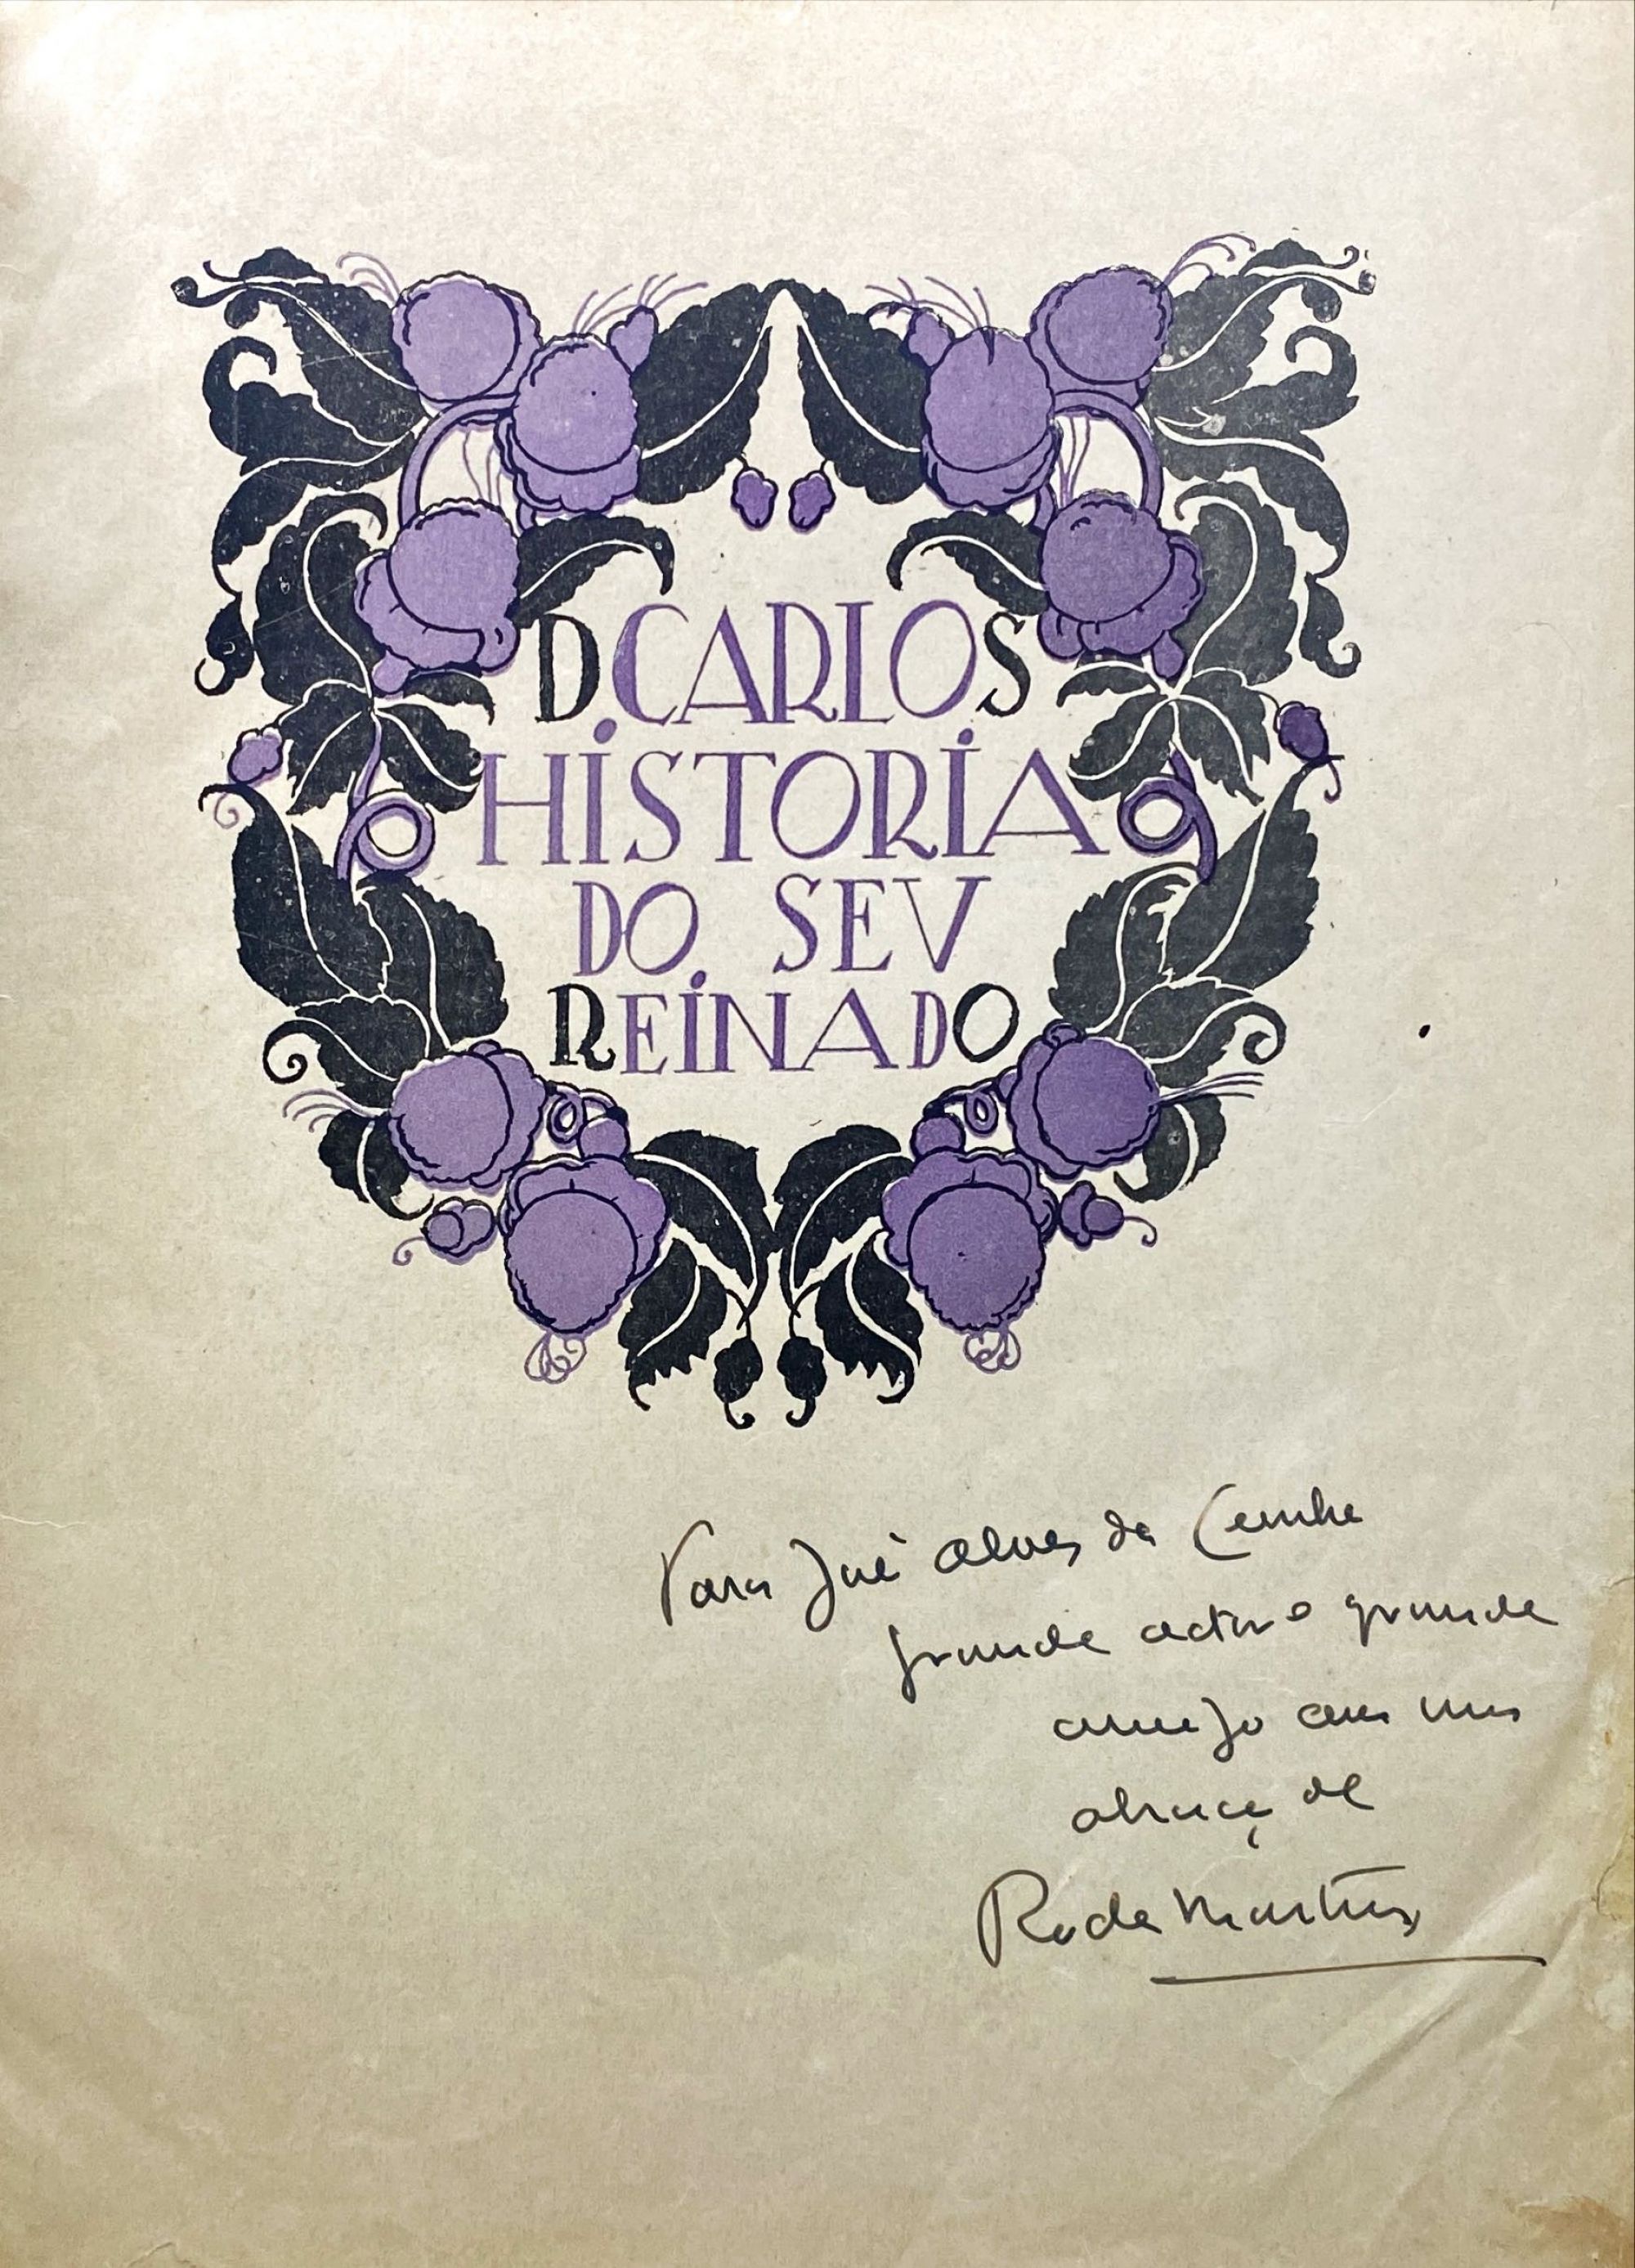 D CARLOS
HISTORIA
DO SEV
REINADO
Para José Alves da Cunha
grande actor e grande
amigo com um
abraço de
Rocha Martins